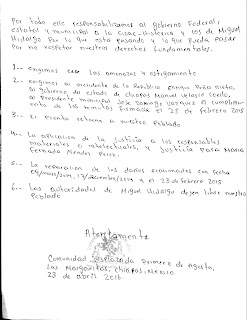 Por todo ello responsabilizamos al Gobierno Federal,
estatal y municipal a la CIOAC-Historica y los de Miguel
Hidalgo Por lo que esta pasando y lo que pueda pasar
Por no respetar nuestros derechos fundamentales.
1.- exigimos cese las amenazas y ostigamiento
2.- exigimos al presidente de la Republica Enrique Peña Nieto,
al Gobierno del estado de chiapas Manuel velasco coello,
al presidente municipal Jose Domingo Vazquez el cumplimi-
ento de las minutas firmada el 25 de febrero 2015
3.- El pronto retorno a nuestro Poblado
4.- La aplicacion de la Justicia a los responsables
materiales e intelectuales, y Justicia para Maria
Fernanda Mendez Perez.
5.- La reparacion de los daños ocasionados con fecha
y el 23 de febrero 2015
6.- Las autoridades de Miguel Hidalgo dejen libre nuestro
Poblado
Atentamente
Comunidad Desplazada Primero de Agosto,
Las Margaritas, Chiapas, Mexico.
23 de abril 2016.